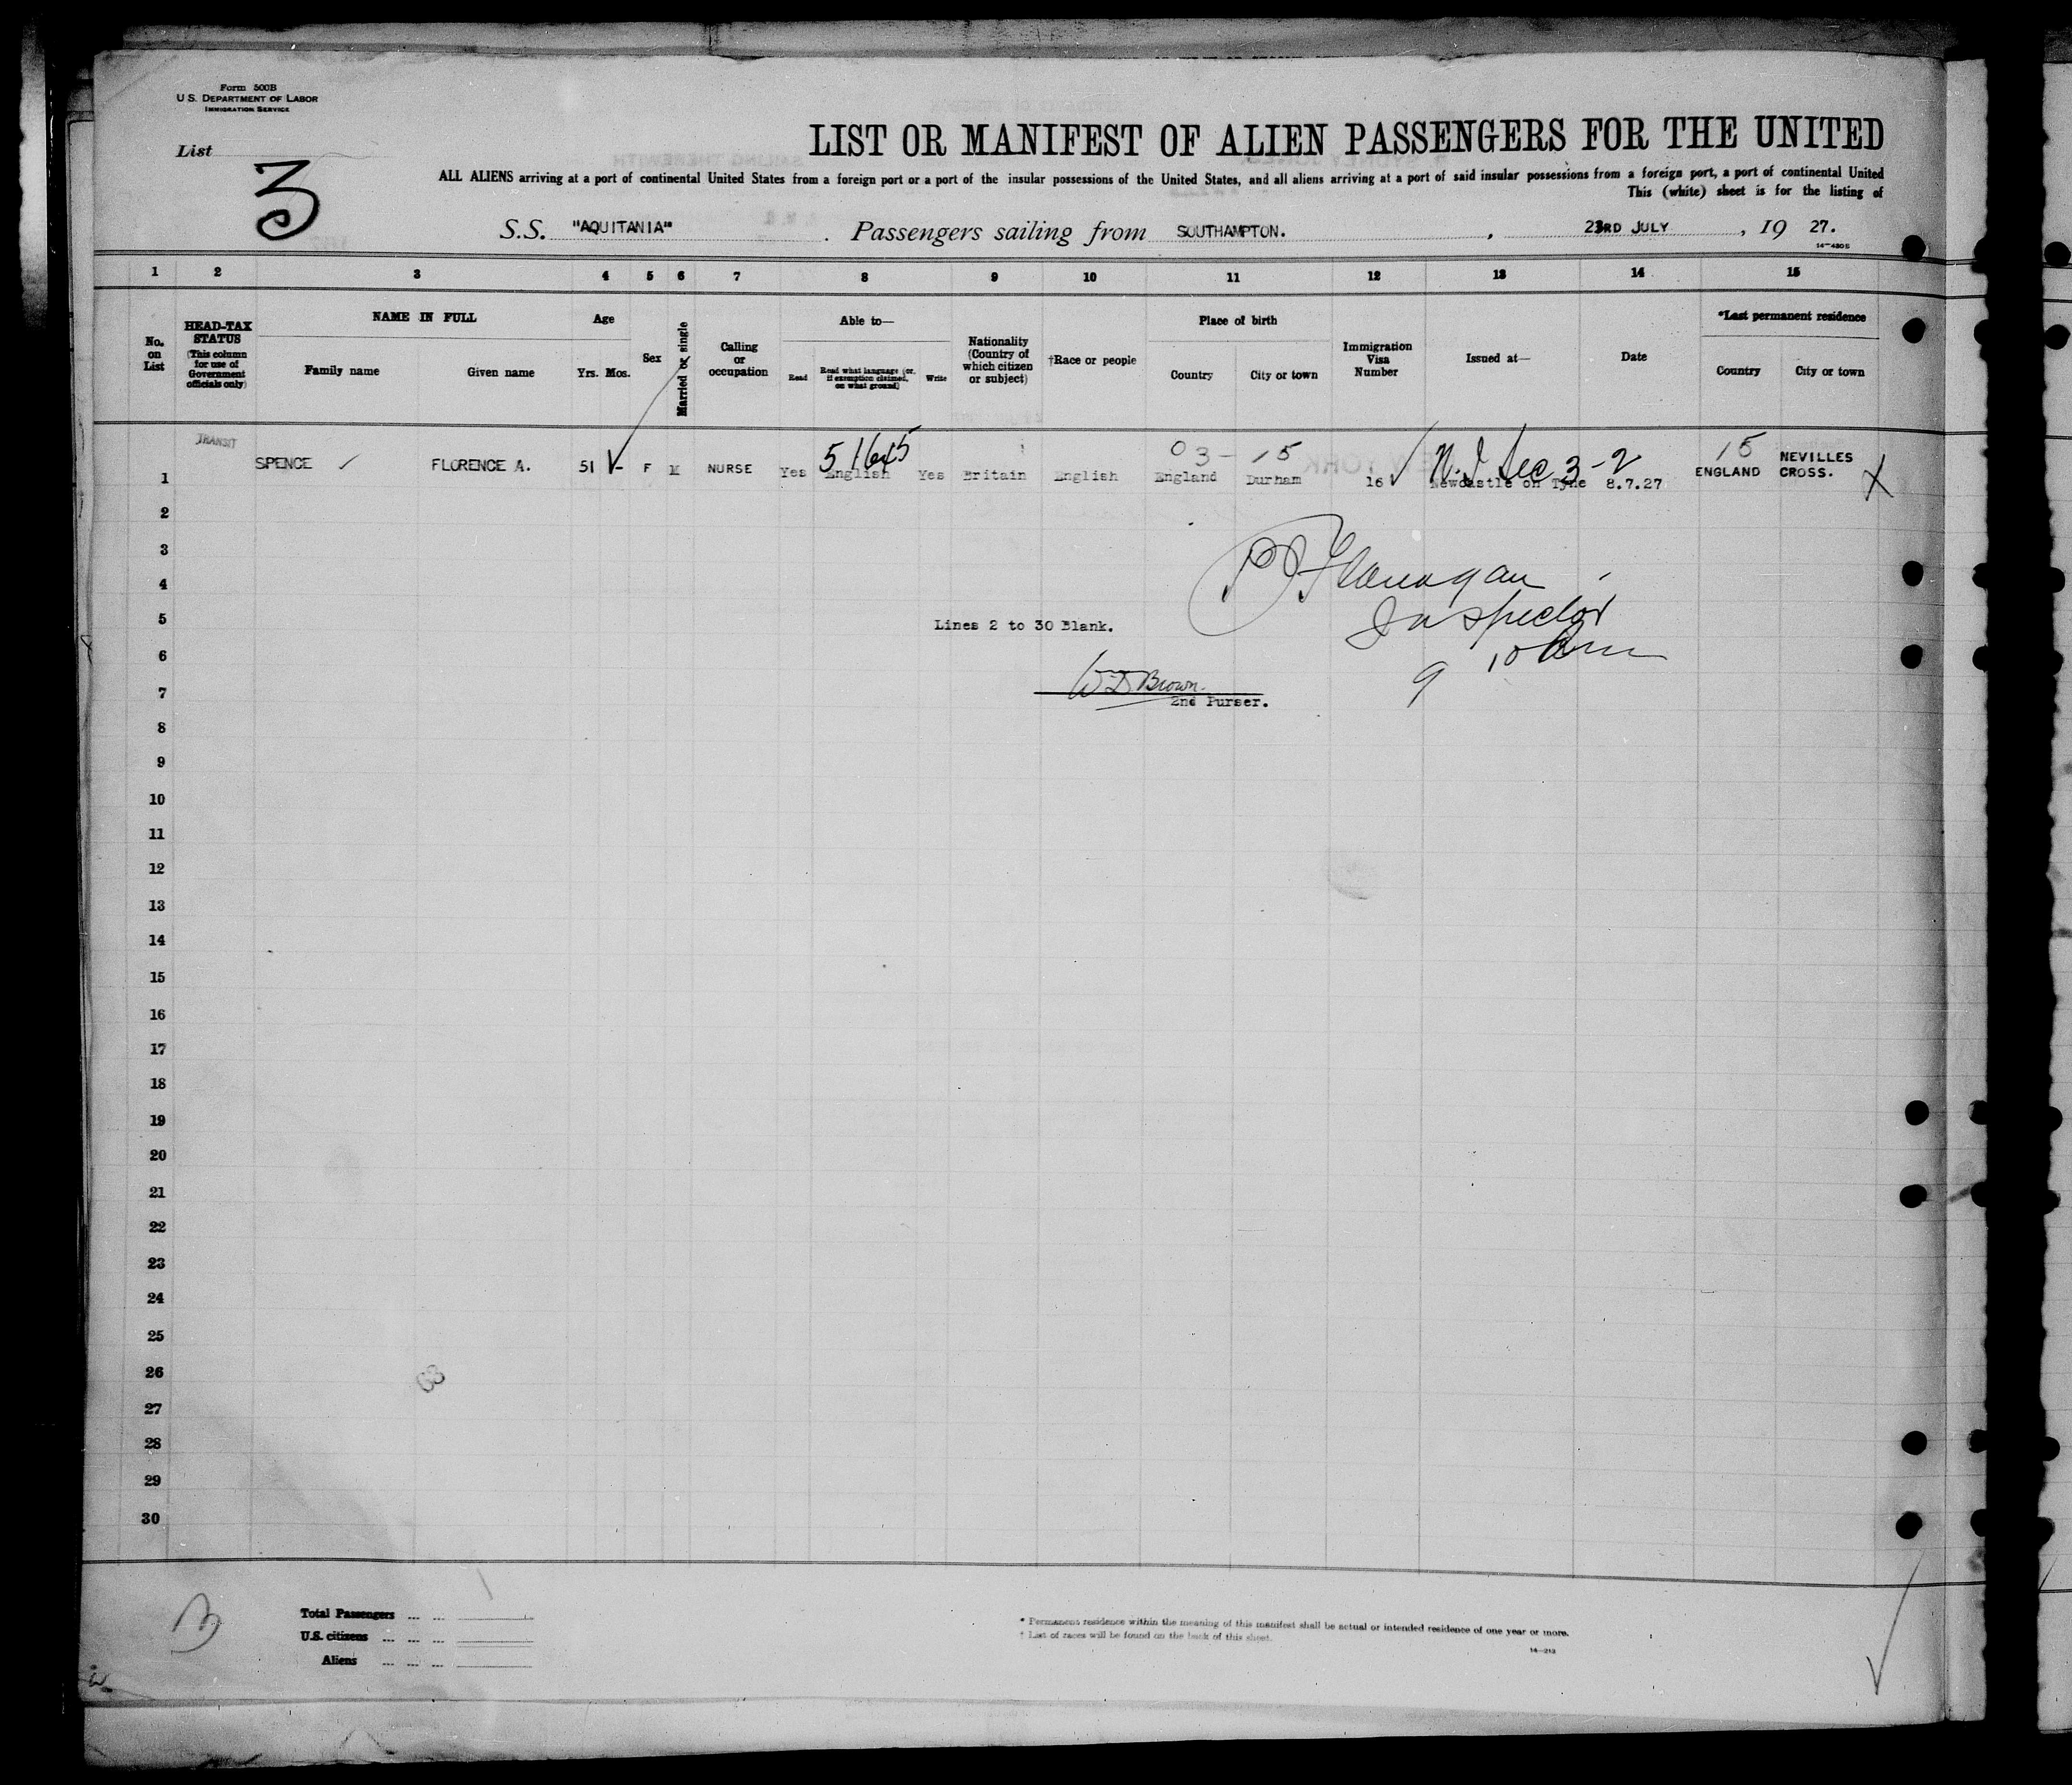 Form 500B
U.S. DEPARTMENT OF LABOR
IMMIGRATION SERVICE
List
3
LIST OR MANIFEST OF ALIEN PASSENGERS FOR THE UNITED
ALL ALIENS arriving at a port of continental United States from a foreign port or a port of the insular possessions of the United States, and all aliens arriving at a port of said insular possessions from a foreign port, a port of continental United
This (white) sheet is for the listing of
S.S. "AQUITANIA" . Passengers sailing from SOUTHAMPTON. , 23RD JULY , 19 27.
1 2 3 4 5 6 7 8 9 10 11 12 13 14 15
No. on List
HEAD-TAX STATUS (This column for use of Government officials only)
NAME IN FULL
Family name Given name
Age
Yrs. Mos.
Sex
Married or single
Calling or occupation
Able to—
Read Read what language (or, if exemption claimed, on what ground) Write
Nationality (Country of which citizen or subject)
†Race or people
Place of birth
Country City or town
Immigration Visa Number
Issued at—
Date
*Last permanent residence
Country City or town
TRANSIT
51645 03-15 3-2 15
1 SPENCE FLORENCE A. 51 - F M NURSE Yes English Yes Britain English England Durham 16 Newcastle on Tyne 8.7.27 ENGLAND NEVILLES CROSS. X
2
3
4
Flanagan
5
Inspector
Lines 2 to 30 Blank.
6
9 10 Am
7
W D Brown.
2nd Purser.
8
9
10
11
12
13
14
15
16
17
18
19
20
21
22
23
24
25
26
27
28
29
30
Total Passengers ... ...
U.S. citizens ... ... ...
Aliens ... ... ...
* Permanent residence within the meaning of this manifest shall be actual or intended residence of one year or more.
† List of races will be found on the back of this sheet.
14—213